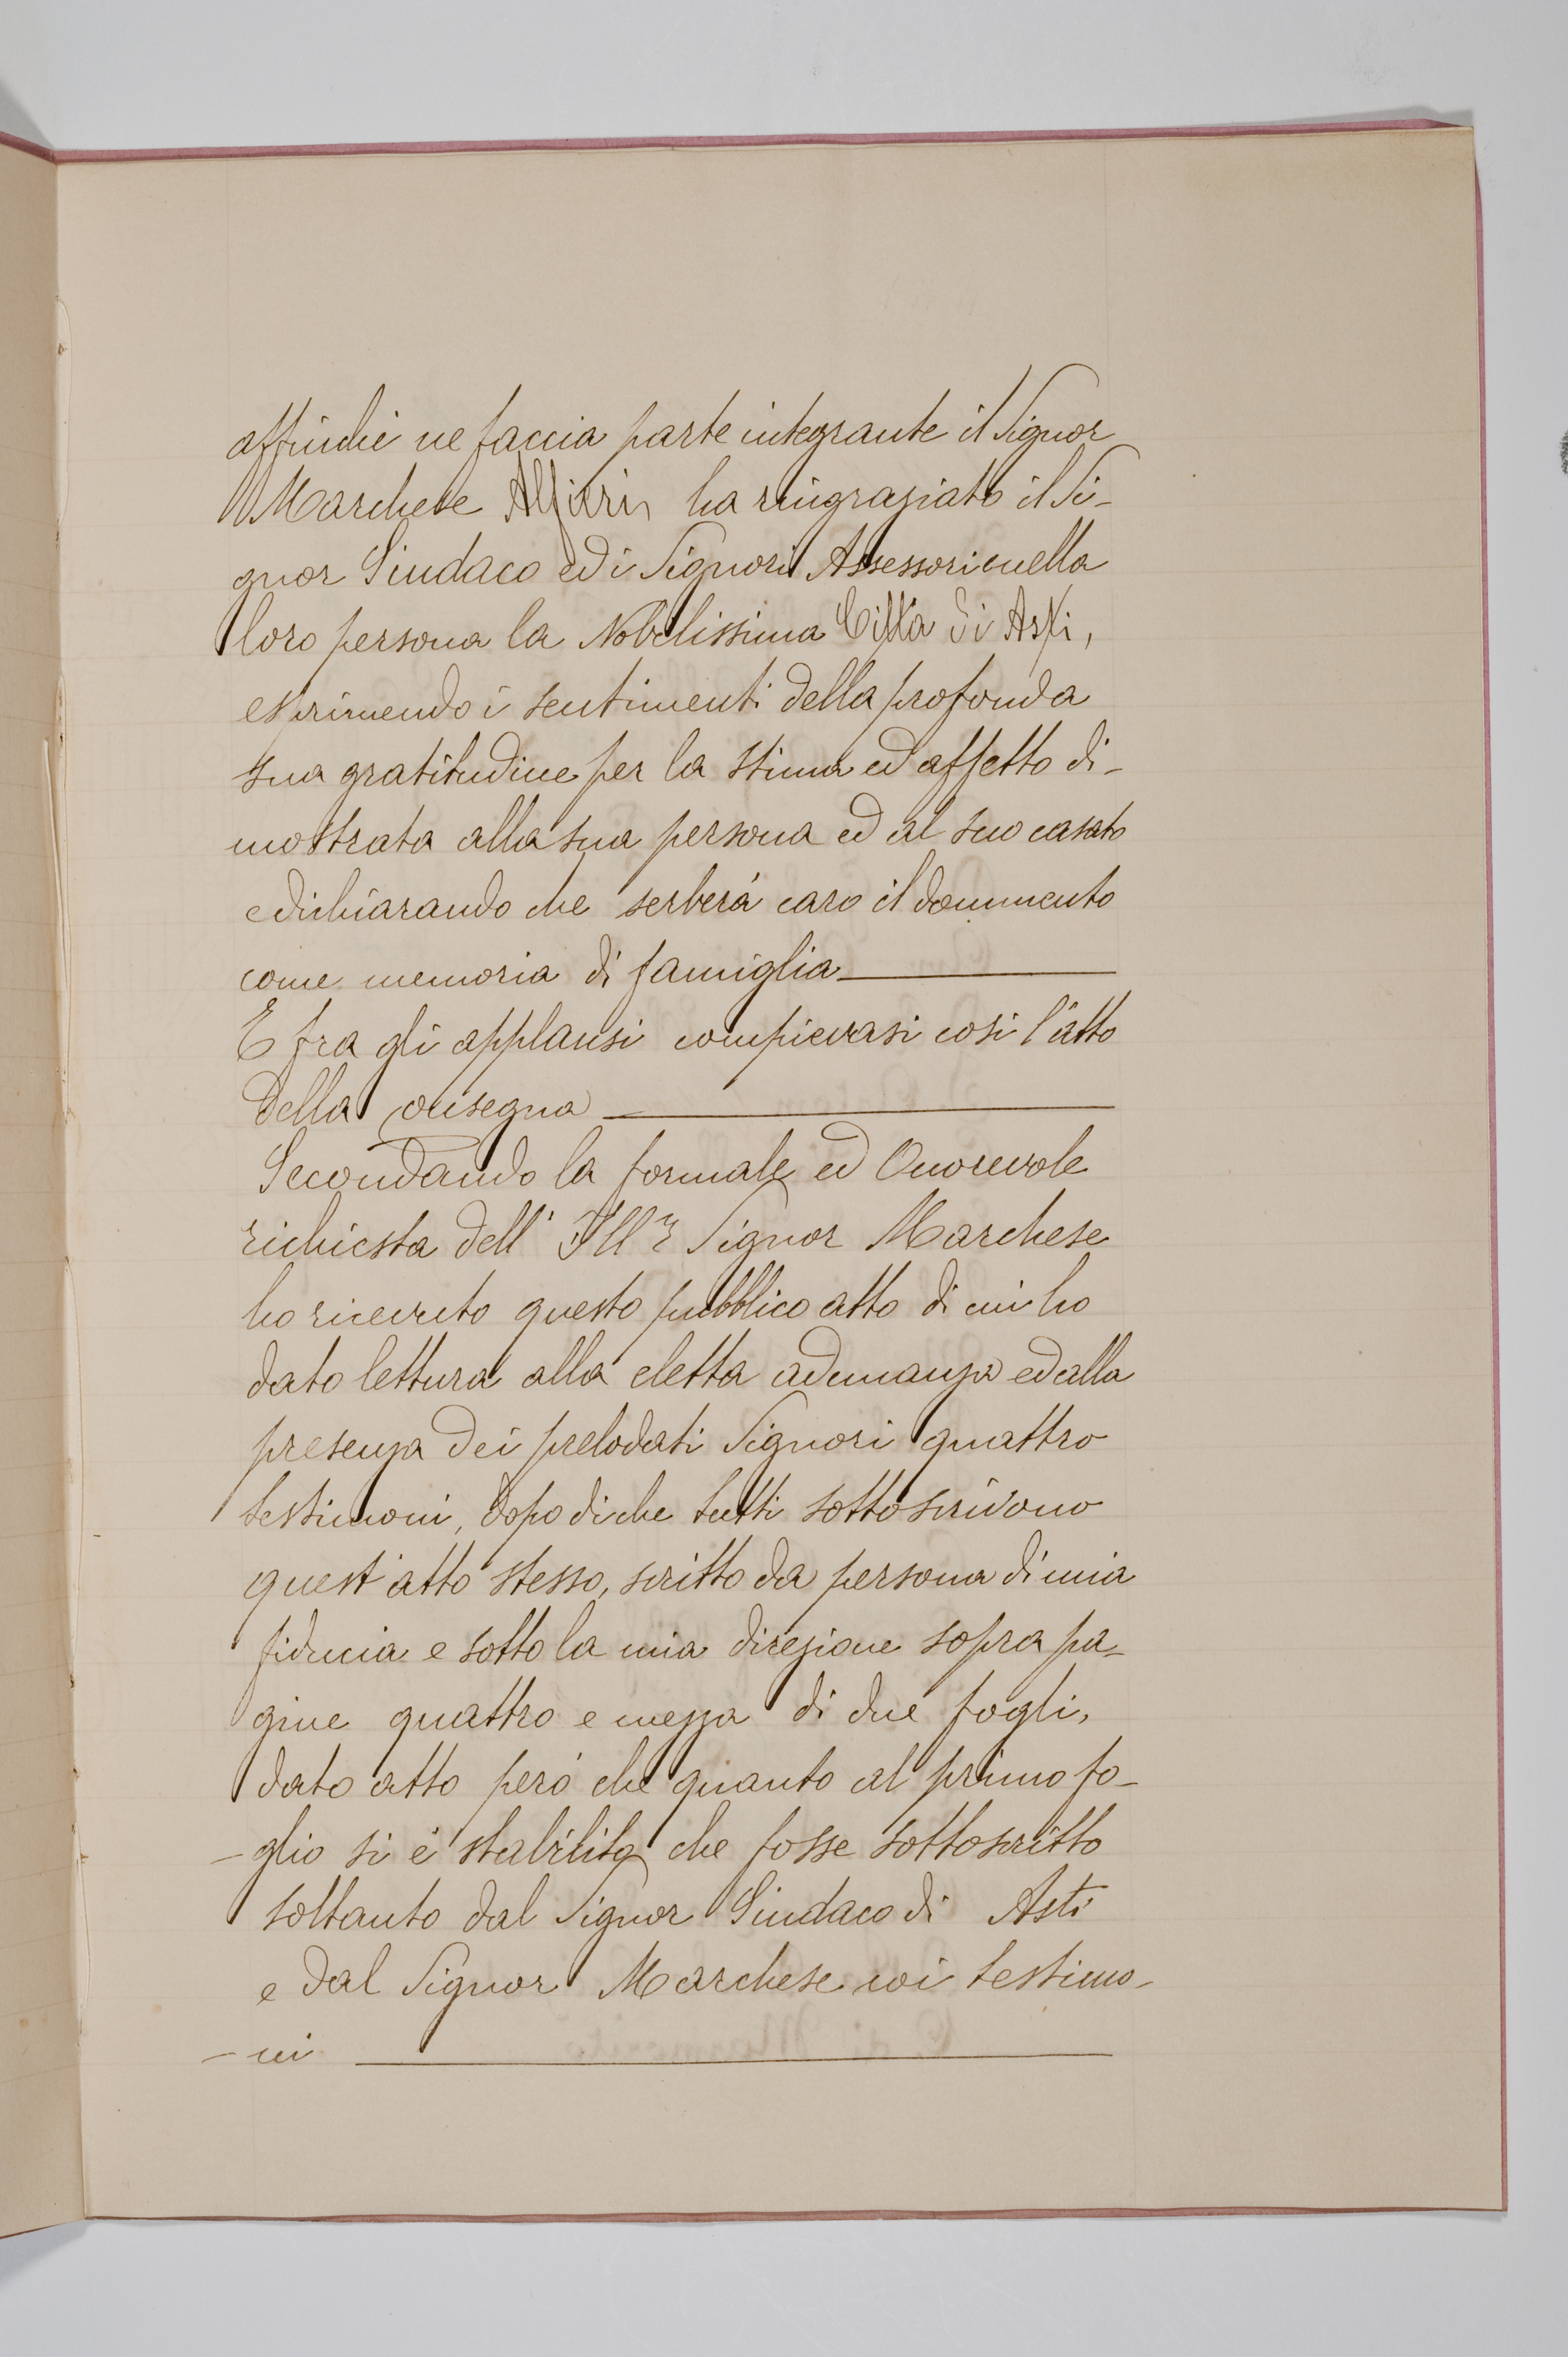 affinché ne faccia parte integrante il Signor
Marchese Alfieri ha ringraziato il Si-
gnor Sindaco ed i Signori Assessori e nella
loro persona la Nobilissima Città di Asti,
esprimendo i sentimenti della profonda
sua gratitudine per la stima ed affetto di-
mostrata alla sua persona ed al suo casato
e dichiarando che serberá caro il documento
come memoria di famiglia
E fra gli applausi compievasi cosi l'atto
della consegna
Secondando la formale ed Onorevole
richiesta dell' Ill.r Signor Marchese
ho ricevuto questo pubblico atto di cui ho
dato lettura alla eletta adunanza ed alla
presenza dei prelodati Signori quattro
testimoni, dopo di che tutti sottoscrivono
quest'atto stesso, scritto da persona di mia
fiducia e sotto la mia direzione sopra pa-
gine quattro e mezza di due fogli,
dato atto peró che quanto al primo fo-
- glio si é stabilito che fosse sottoscritto
soltanto dal Signor Sindaco di Asti
e dal Signor Marchese coi testimo-
- ni